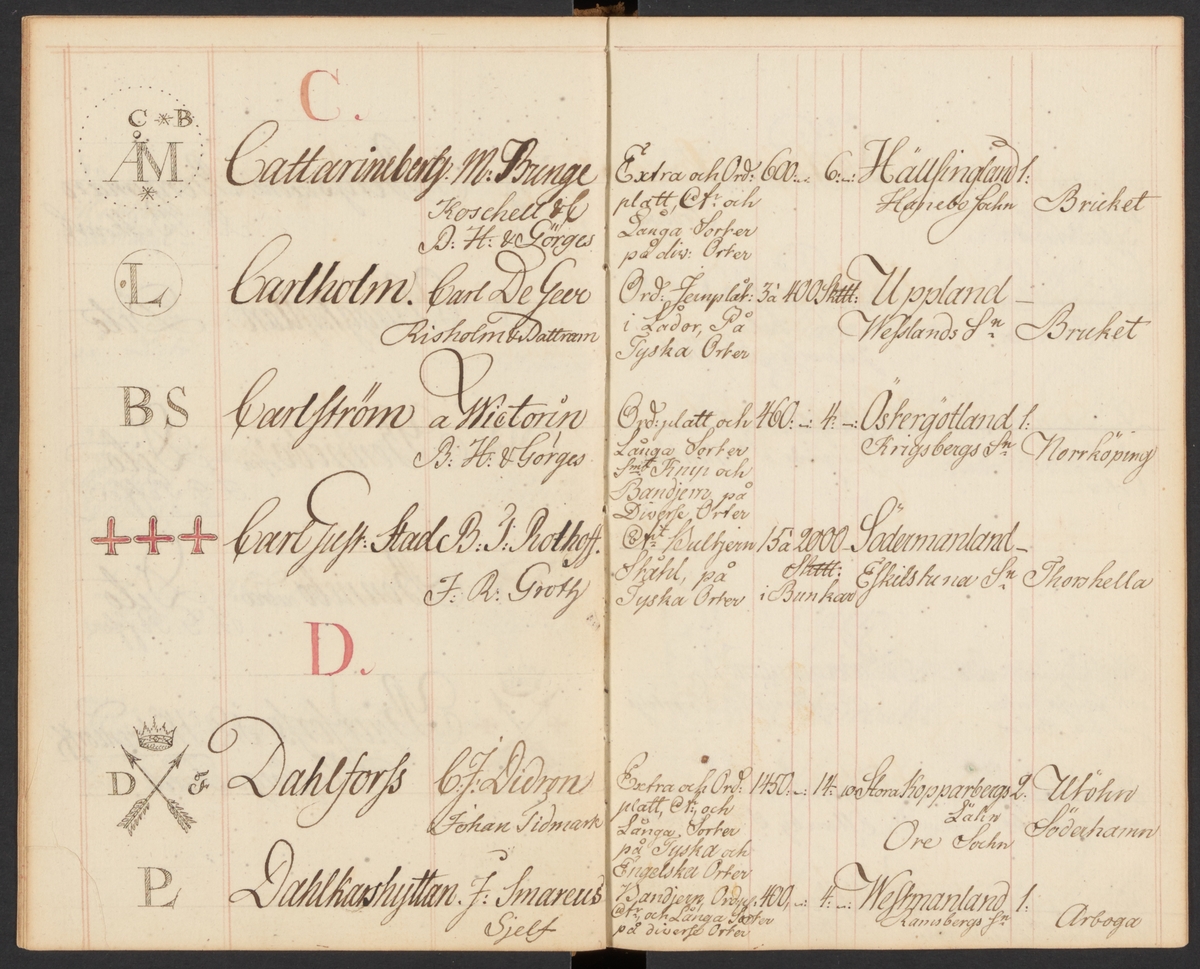 C.
C * B
ÅM
Cattarineberg. M: Brunge Extra och Ord: 600.-. 6.-: Hällsingland 1:
Koschell & C platt, och Hanebo Sochn Bruket
D: H: & Görges Långa Sorter
på div: Orter
L Carlholm. Carl De Geer Ord: Jemplåt: 3 à 400 Skttt: Uppland –
Kisholm & Dattram i Lådor, På Wesslands Sn Bruket
Tyska Orter
B S Carlström a Wictorin Ord: platt, och 460: -: 4: -: Östergötland 1:
B: H: & Görges Långa Sorter Krigsbergs Sn Norrköping
Smt Knip och
Bandjern, på
Diverse Orter
+++ Carl Gust: Stad B. J: Rothoff. Bultjern 15 à 2000 Södermanland –
F: R: Groth Ståhl, på Skttt: Eskilstuna Sn Thorshella
Tyska Orter i Bunkar
D.
D F Dahlforss C. J: Didron Extra och Ord: 1450: -: 14: Stora Kopparbergs 2: Utöhn
Johan Tidmark platt, och Lähn Söderhamn
Långa Sorter Ore Sochn
på Tyska och
Engelska Orter
PL Dahlkarshyttan. J: Smareus Bandjern, Ord: 400, -: 4: -: Westmanland 1:
Sjelf och Långa Sorter Ramsbergs Sn Arboga
på diverse Orter